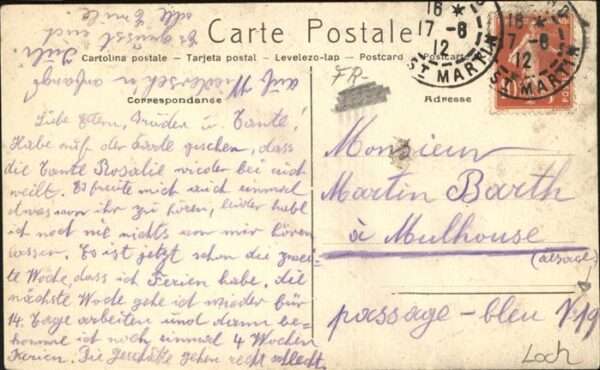 Carte Postale
Cartolina postale — Tarjeta postal — Levelezo-lap — Postcard
Correspondance
Adresse
FR-
16 *
17-6
12
ST MARTIN
16 *
17-6
12
ST MARTIN
10
Liebe Eltern, Brüder u. Tante!
Habe auf der Karte gesehen, dass
die Tante Rosalie wieder bei euch
weilt. Es freute mich auch einmal
etwas von ihr zu hören, leider habt
ich noch nie nichts von mir hören
lassen. Es ist jetzt schon die zwei-
te Woche, dass ich Ferien habe, die
nächste Woche gehe ich wieder für
14. Tage arbeiten und dann be-
komme ich noch einmal 4 Wochen
Ferien. Die Geschäfte gehen recht schlecht.
auf Wiedersehn anfangs
Juli
Es grüsst euch
Monsieur
Martin Barth
à Mulhouse
(alsace)
passage-bleu N 19
Loch